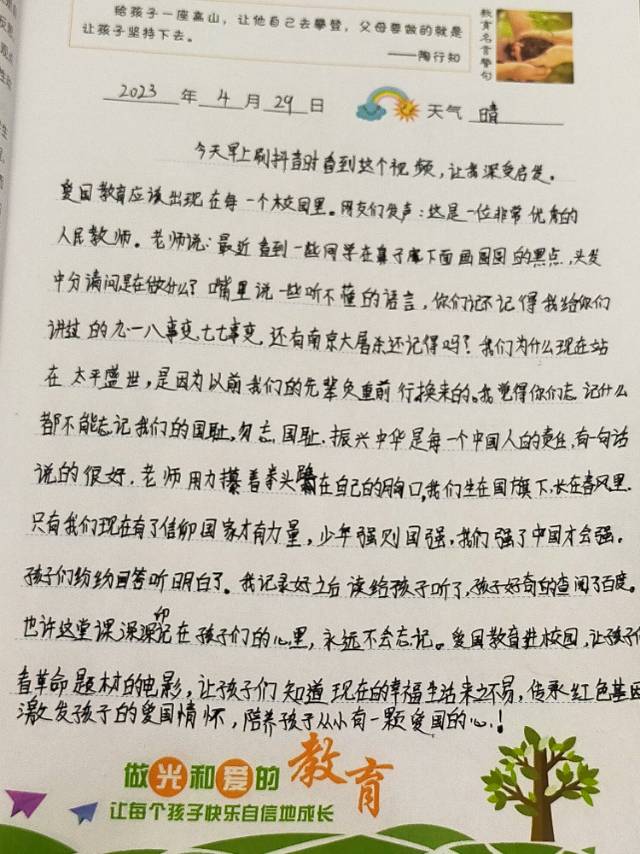 给孩子一座高山，让他自己去攀登，父母要做的就是
让孩子坚持下去。
——陶行知
教育名言警句
2023 年 4 月 29 日 天气 晴
今天早上刷抖音时看到这个视频，让我深受启发。
爱国教育应该出现在每一个校园里。网友们发声：这是一位非常优秀的
人民教师。老师说：最近看到一些同学在鼻子底下面画圆圆的黑点，头发
中分请问是在做什么？嘴里说一些听不懂的语言，你们还记得我给你们
讲过的九一八事变，七七事变，还有南京大屠杀还记得吗？我们为什么现在站
在太平盛世，是因为以前我们的先辈负重前行换来的。我觉得你们忘记什么
都不能忘记我们的国耻，勿忘国耻，振兴中华是每一个中国人的责任，有一句话
说的很好，老师用力攥着拳头在自己的胸口，我们生在国旗下，长在春风里，
只有我们现在有了信仰国家才有力量，少年强则国强，我们强了中国才会强。
孩子们纷纷回答听明白了。我记录好之后读给孩子听了，孩子好奇的查阅了百度。
也许这堂课深深印在孩子们的心里，永远不会忘记。爱国教育进校园，让孩子们
看革命题材的电影，让孩子们知道现在的幸福生活来之不易，传承红色基因
激发孩子的爱国情怀，陪养孩子从小有一颗爱国的心！
做光和爱的教育
让每个孩子快乐自信地成长